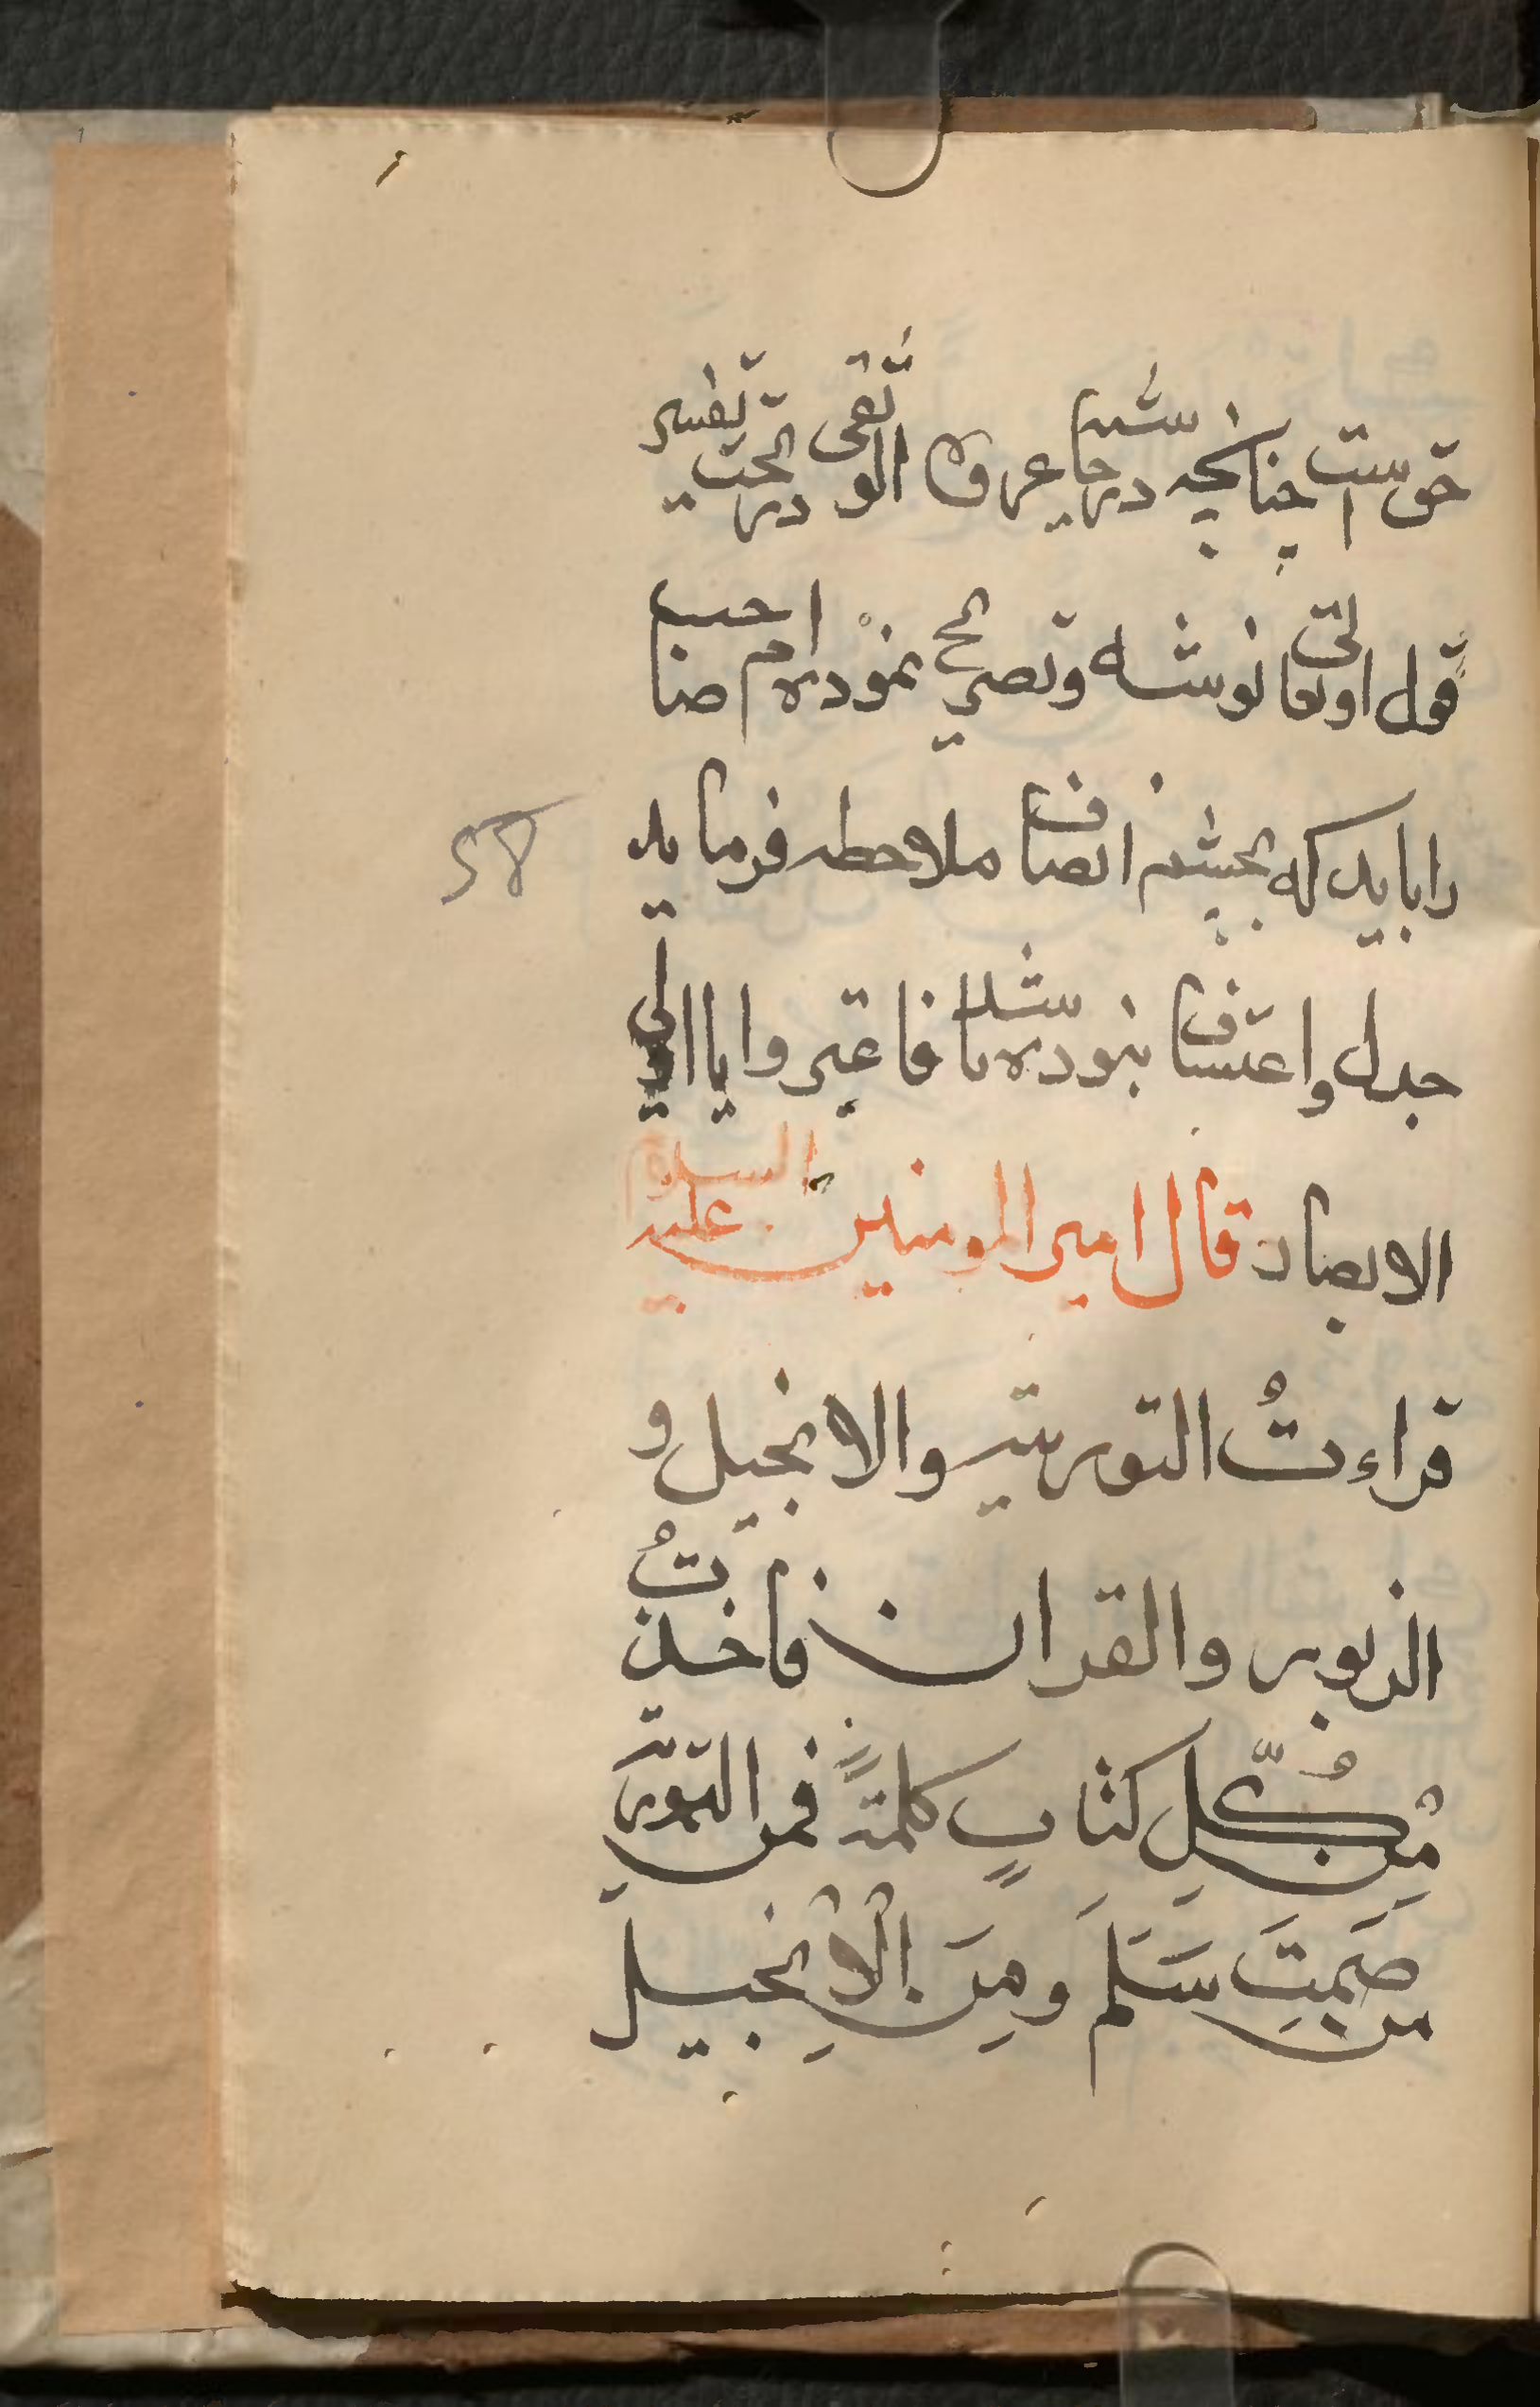 حق است چنانچه در حاشیه عروة الوثقی در تحت تفسیر
قول او تعالی نوشته و تصریح نموده ام صاحب
را باید که بچشم انصاف ملاحظه فرماید
جدل و اعتساف بنوده باشد فاعتبروا یا اولی
الابصار قال امیر المومنین علیه السلام
قراءتُ التوریته والانجیل و
الزبور والقران فاخذتُ
مِنْ كُّلِ كتابٍ كلمتةً فمن التوریتهِ
من صَمِتَ سَلَمَ ومِنَ الْاِنْجیل
58